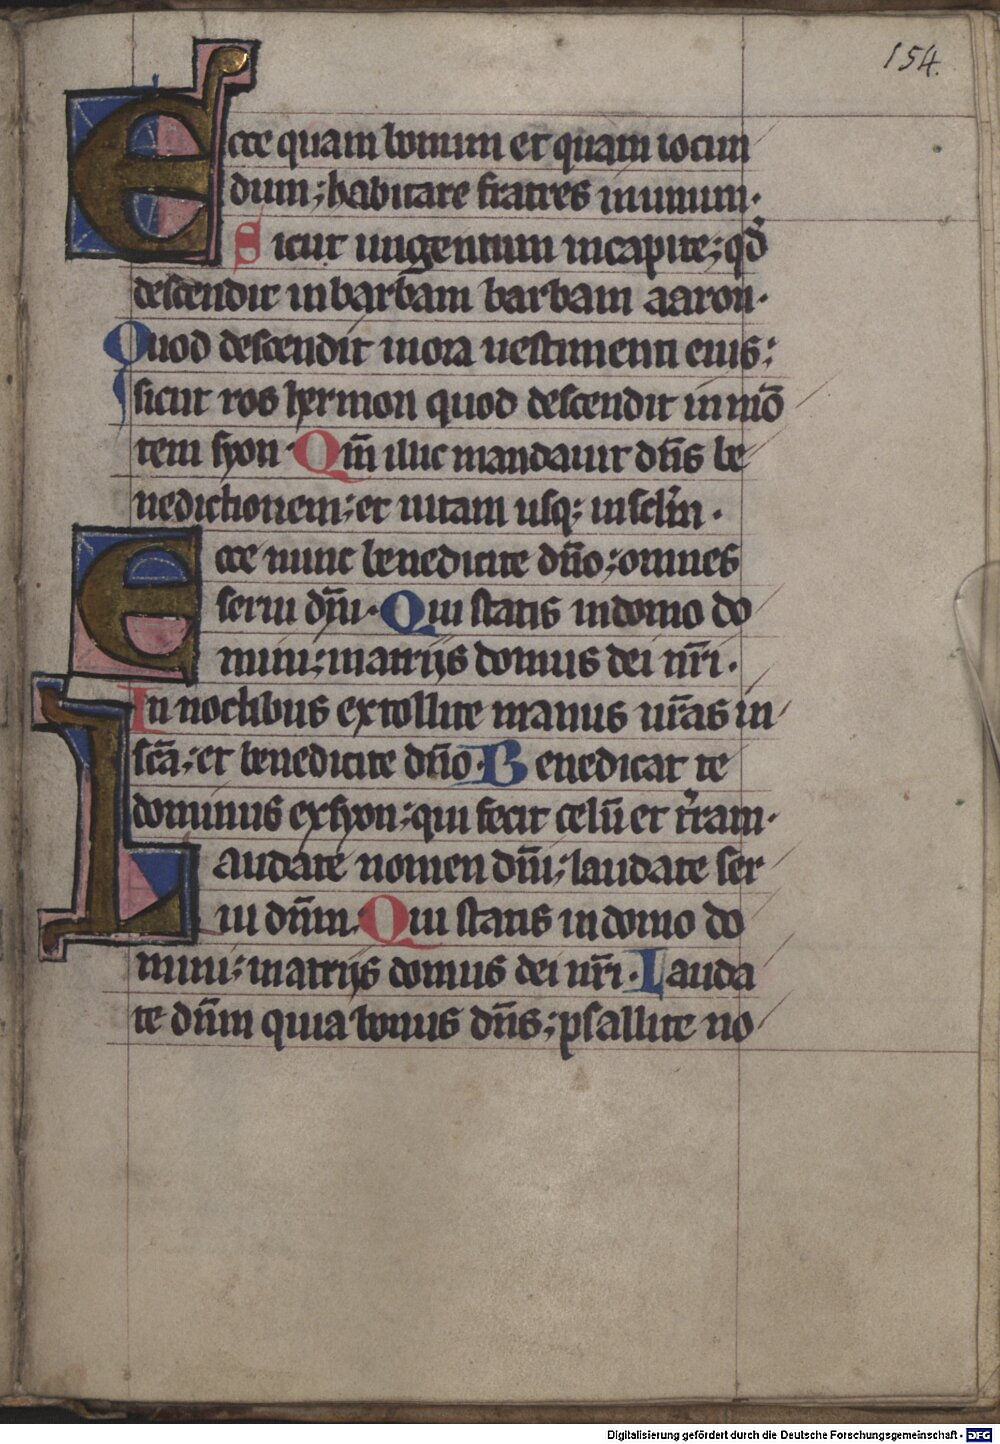 154.
Ecce quam bonum et quam iocun
dum; habitare fratres inunum.
Sicut ungentum incapite; qd̓
descendit inbarbam barbam aaron.
Quod descendit inora uestimenti eius:
sicut ros hermon quod descendit inmō
tem syon. Qm̄ illuc mandauit dn̄s be
nedictionem; et uitam usq; insclm̄.
Ecce nunc benedicite dn̄o; omnes
serui dn̄i. Qui statis indomo do
mini; inatrijs domus dei nr̄i.
In noctibus extollite manus ur̄as in
sc̄a; et benedicite dn̄o. Benedicat te
dominus exsyon; qui fecit celū et tr̓ram.
Laudate nomen dn̄i; laudate ser
ui dn̄m. Qui statis indomo do
mini; inatrijs domus dei nr̄i. Lauda
te dn̄m quia bonus dn̄s; psallite no
Digitalisierung gefördert durch die Deutsche Forschungsgemeinschaft - DFG